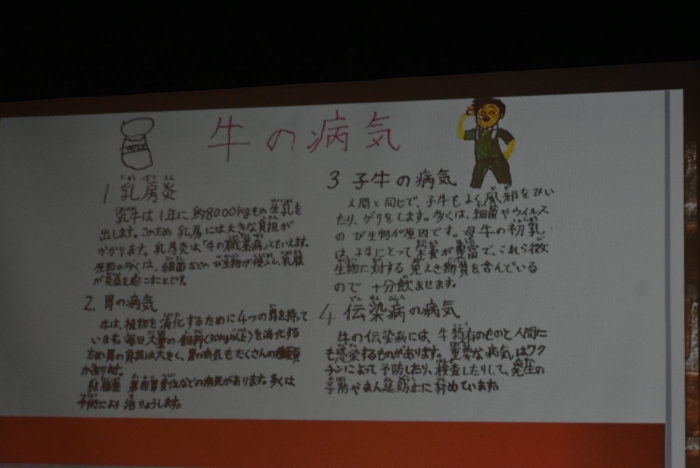 牛の病気
1 乳房炎
乳牛は1年に約8000kgもの生乳を
出します。このため乳房には大きな負担が
かかります。乳房炎は、「牛の職業病」ともいえます。
原因の多くは、細菌などのび生物が侵入し、乳腺
が炎症を起こすことです。
2. 胃の病気
牛は、植物を消化するために4つの胃を持って
います。毎日大量の
を消化する
ため胃の負担は大きく、胃の病気もたくさんの種類
があります。
などの病気があります。多くは
予防により
3 子牛の病気
人間と同じで、子牛もよく風邪をひい
たり、ゲリをします。多くは、細菌やウイルス
のび生物が原因です。母牛の初乳
は、子牛にとって栄養が豊富で、これら微
生物に対する免えき物質を含んでいる
ので十分飲ませます。
4. 伝染病の病気
牛の伝染病には、牛特有のものと人間に
も感染するものがあります。重要な病気はワク
チンによって予防したり、検査したりして、発生の
予防やまん延防止に努めています。